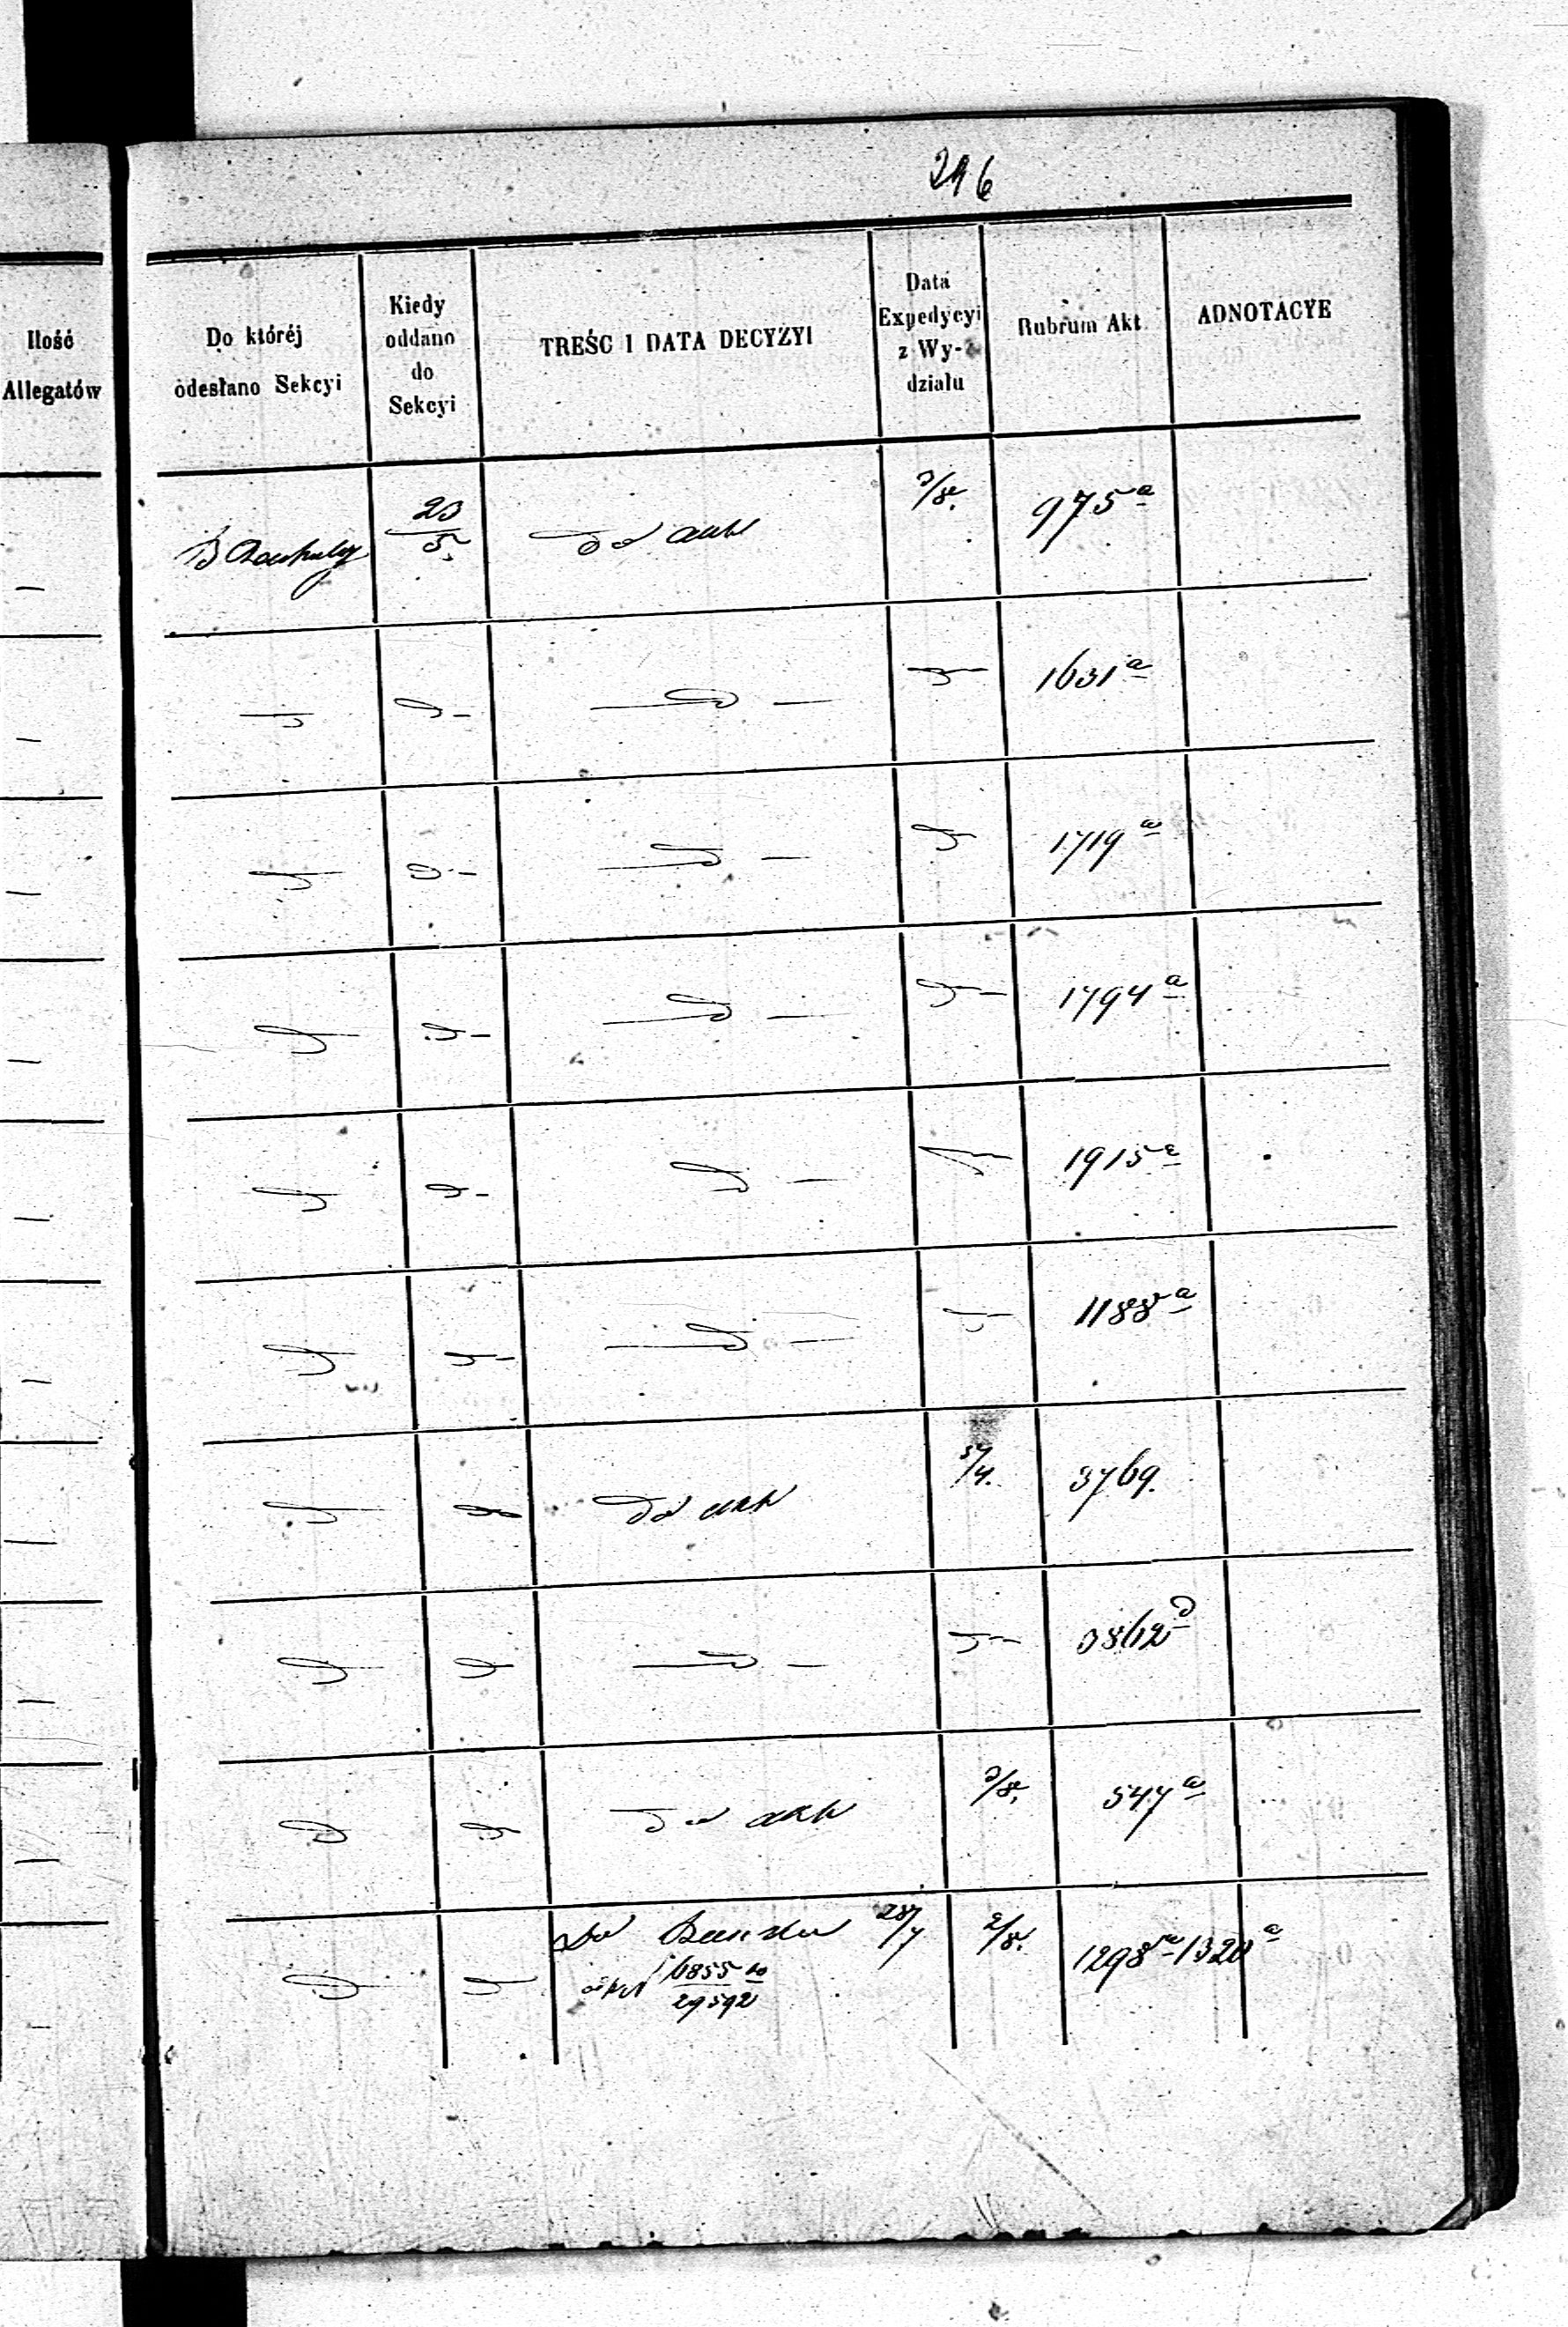 246
Ilość
Allegatów
Do któréj
odesłano Sekcyi
Kiedy
oddano
do
Sekcyi
TREŚC I DATA DECYZYI
Data
Expedycyi
z Wy-
działu
Rubrum Akt
ADNOTACYE
23/5 do akt 3/8. 975 a
1631 a
1719 a
1794 a
1915 a
1188 a
do akt 3769.
3862 d
do akt 3/8. 547 a
Do Banku 28/7 2/8. 1298 a 1320 a
16855/29592